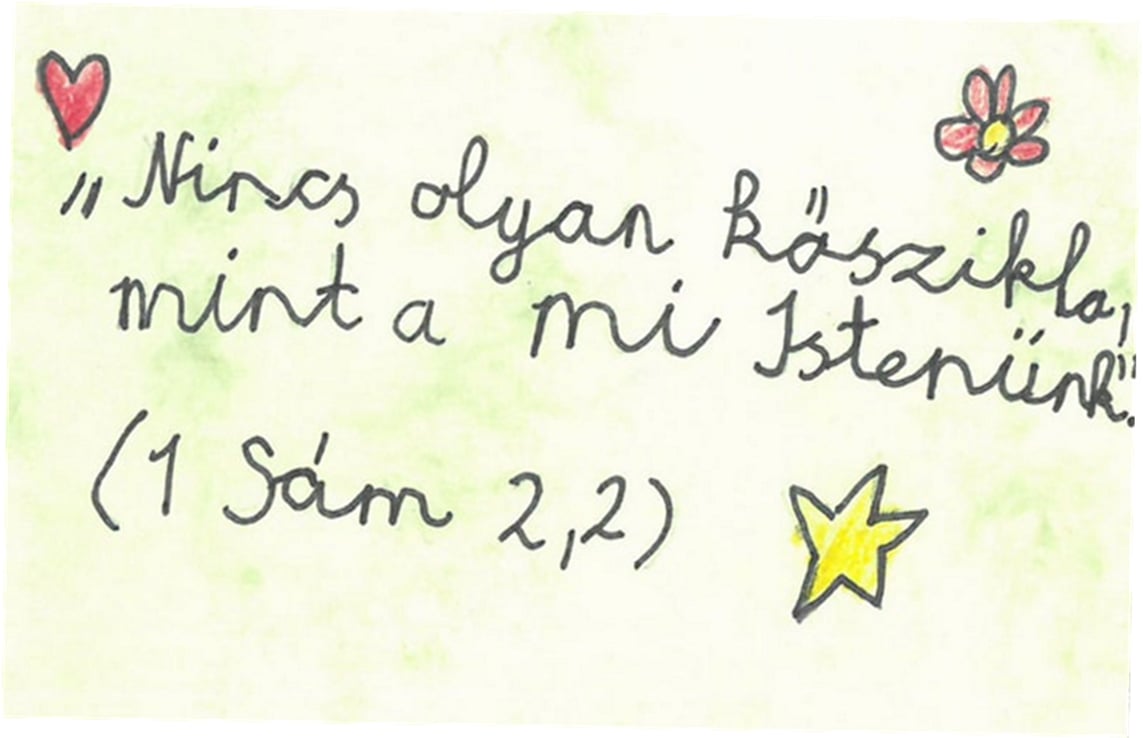 „Nincs olyan kőszikla,
mint a mi Istenünk."
(1 Sám 2,2)